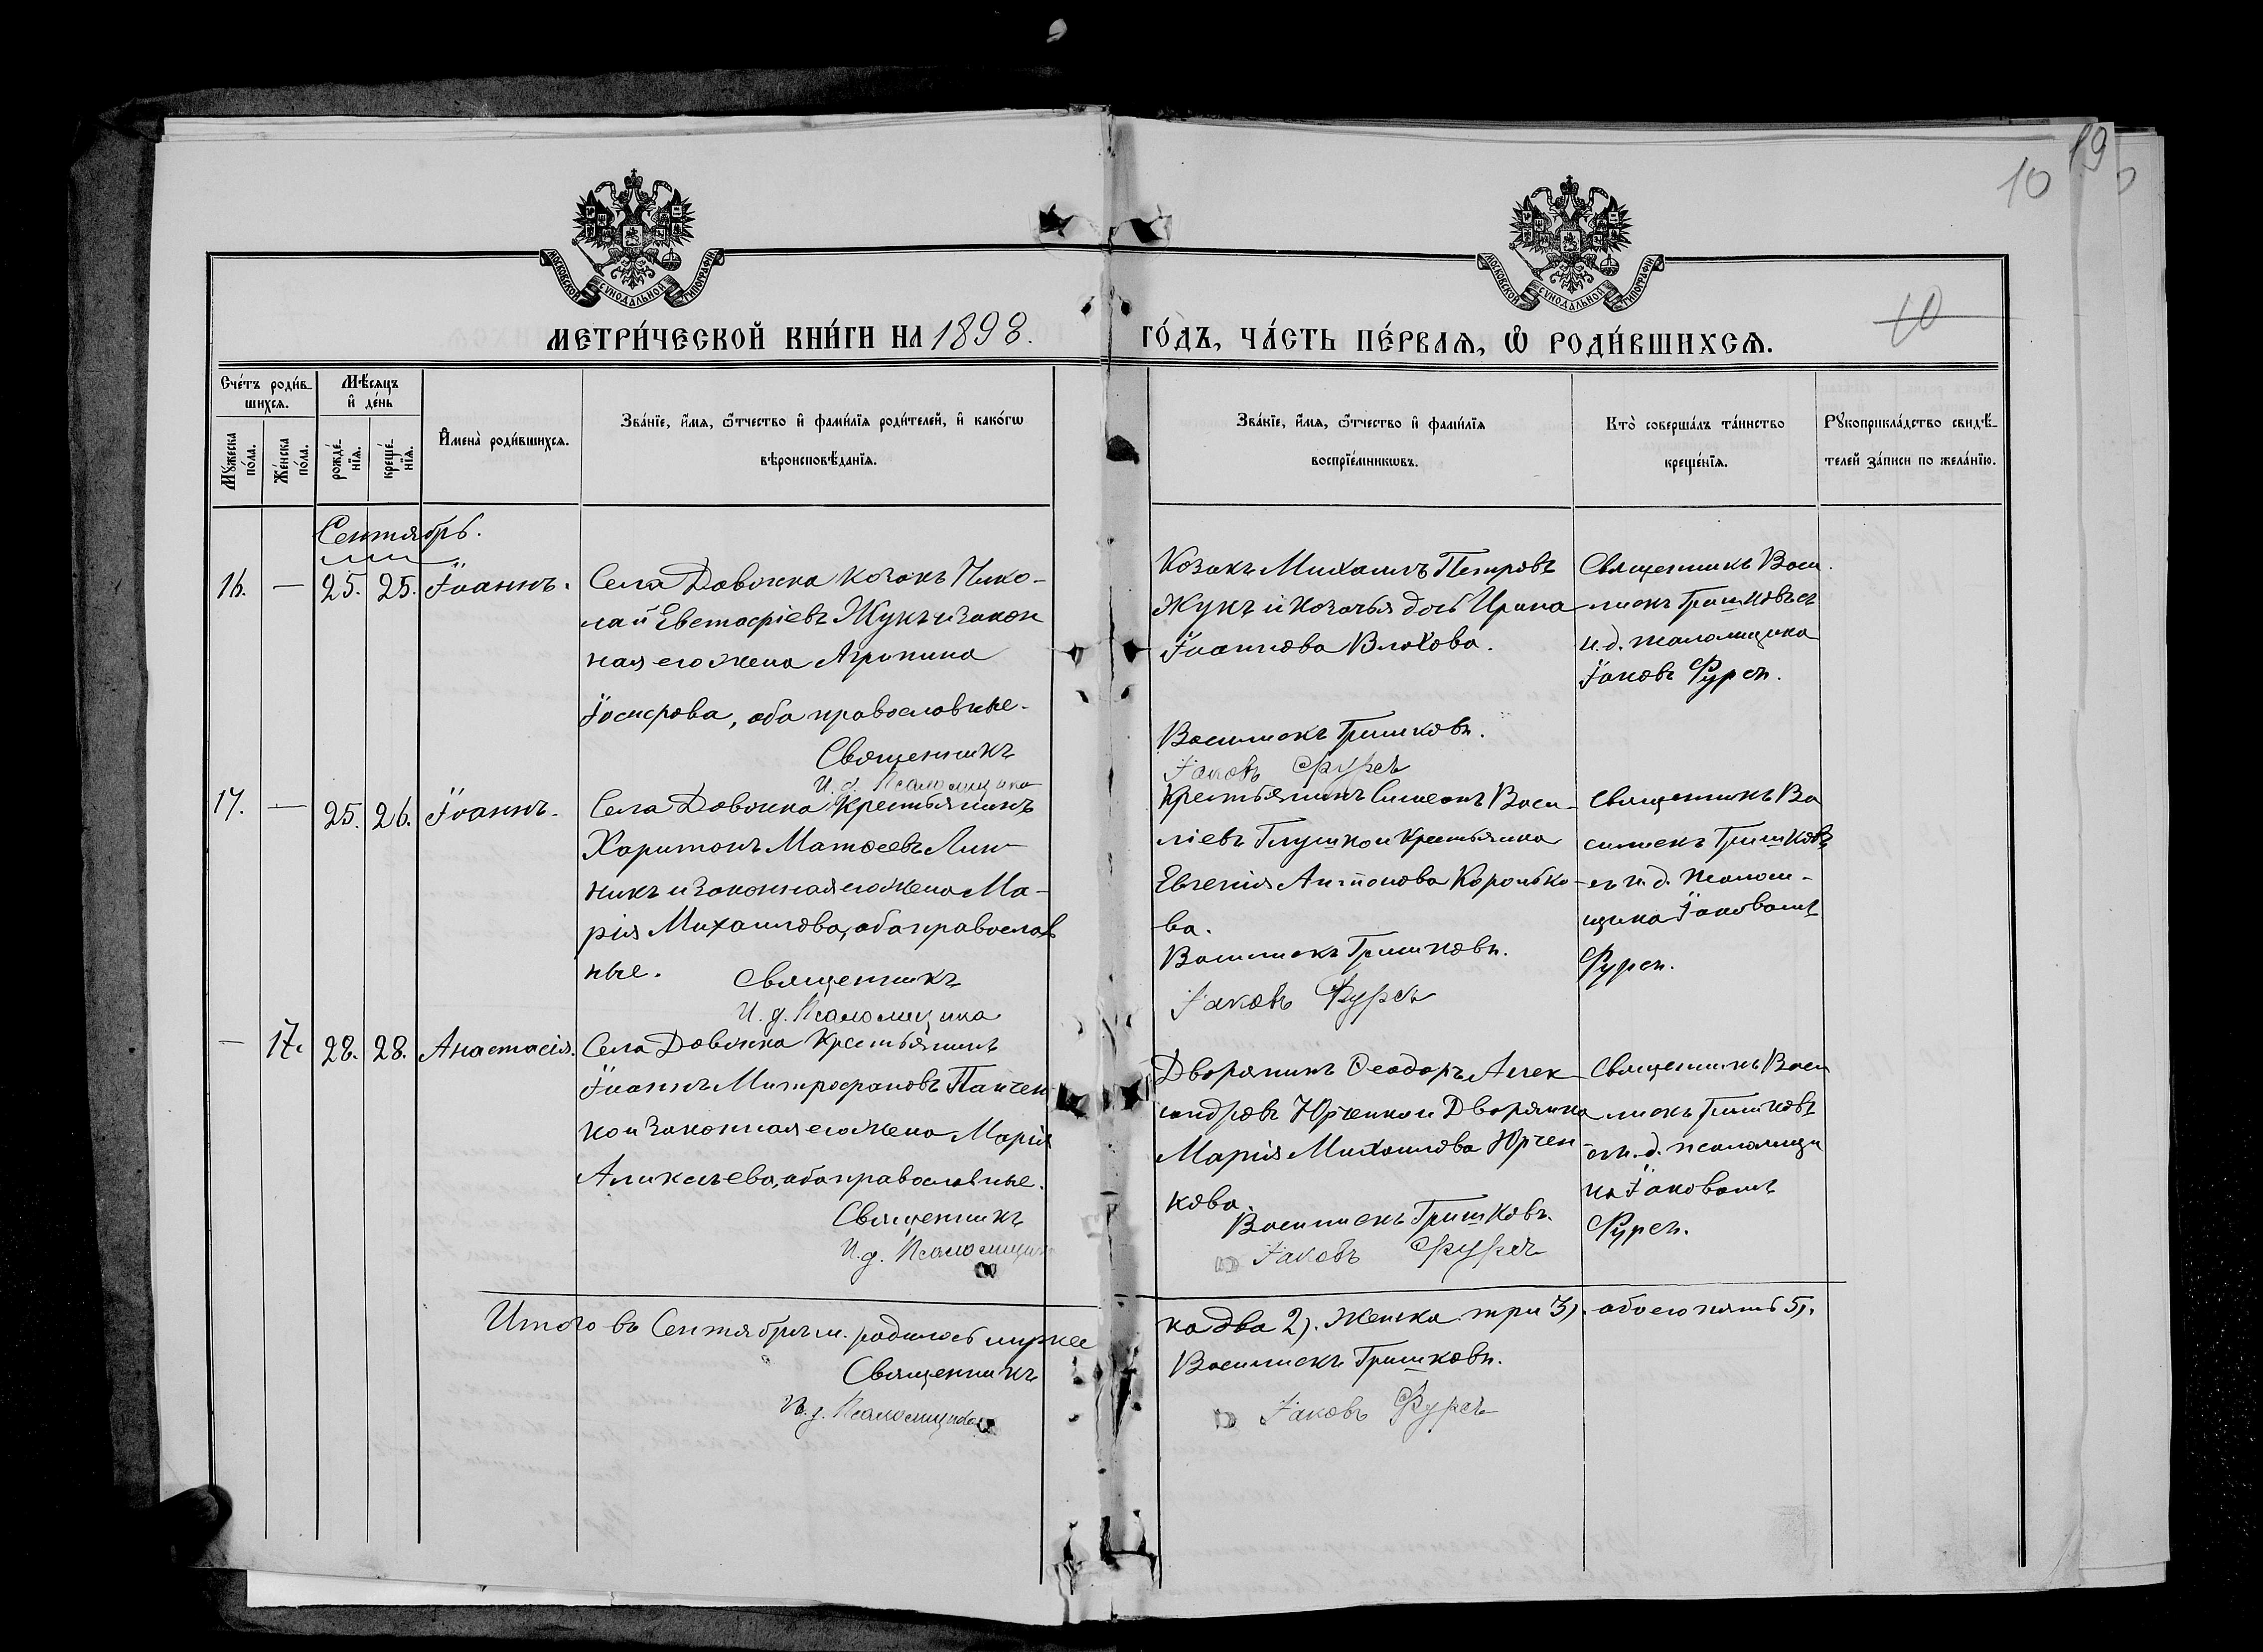 10
19
10
МОСКОВСКОЙ СѴНОДАЛЬНОЙ ТИПОГРАФІИ
МОСКОВСКОЙ СѴНОДАЛЬНОЙ ТИПОГРАФІИ
МЕТРИ́ЧЕСКОЙ КНИ́ГИ НА 1898.
ГО́ДЪ, ЧА́СТЬ ПЕ́РВАѦ, Ѡ҆ РОДИ́ВШИХСѦ.
Сче́тъ роди́в-
шихсѧ.
Мѣ́сѧцъ
и҆ де́нь
Мꙋ́жеска по́ла.
Же́нска по́ла.
рожде́-
нїѧ.
креще́-
нїѧ.
И҆мена̀ роди́вшихсѧ.
Зва́нїе, и҆́мѧ, ѻ҆́тчество и҆ фами́лїѧ роди́телей, и҆ како́гѡ
вѣроисповѣ́данїѧ.
Зва́нїе, и҆́мѧ, ѻ҆́тчество и҆ фами́лїѧ
воспрїе́мникѡвъ.
Кто̀ соверша́лъ та́инство
креще́нїѧ.
Рꙋкоприкла́дство свидѣ́-
телей за́писи по жела́нїю.
Сентябрь.
16. — 25. 25. Іоаннъ.
Села Довжика козакъ Нико-
лай Евстафіевъ Жукъ и закон
ная его жена Агрипина
Іосифова, оба православные.
Священникъ
И. д. Псаломщика
Козакъ Михаилъ Петровъ
Жукъ и козачья дочь Ирина
Іоаннова Влохова.
Василискъ Гришковъ.
Іаковъ Фурсъ
Священникъ Васи
лискъ Гришковъ съ
и. д. псаломщика
Іаковъ Фурсъ.
17. — 25. 26. Іоаннъ.
Села Довжика Крестьянинъ
Харитонъ Матѳеевъ Лин
никъ и законная его жена Ма-
рія Михаилова, оба православ
ные.
Священникъ
И. д. Псаломщика
Крестьянинъ Симеонъ Васи-
ліевъ Глушко и Крестьянка
Евгенія Антонова Коропько
ва.
Василискъ Гришковъ.
Іаковъ Фурсъ
Священникъ Ва
силискъ Гришковъ
съ и. д. псалом-
щика Іаковомъ
Фурсъ.
— 17. 28. 28. Анастасія.
Села Довжика Крестьянинъ
Іоаннъ Митрофановъ Панчен
ко и законная его жена Марія
Аликсѣева, оба православные.
Священникъ
И. д. Псаломщика
Дворянинъ Ѳеодоръ Алек
сандровъ Юрченко и Дворянка
Марія Михаилова Юрчен
кова.
Василискъ Гришковъ.
Іаковъ Фурсъ
Священникъ Васи
лискъ Гришковъ
съ и. д. псаломщи
ка Іаковомъ
Фурсъ.
Итого въ Сентябрѣ м. родилось мужес
ка два 2). Женска три 3). обоего пять 5).
Священникъ
Василискъ Гришковъ.
И. д. Псаломщика
Іаковъ Фурсъ